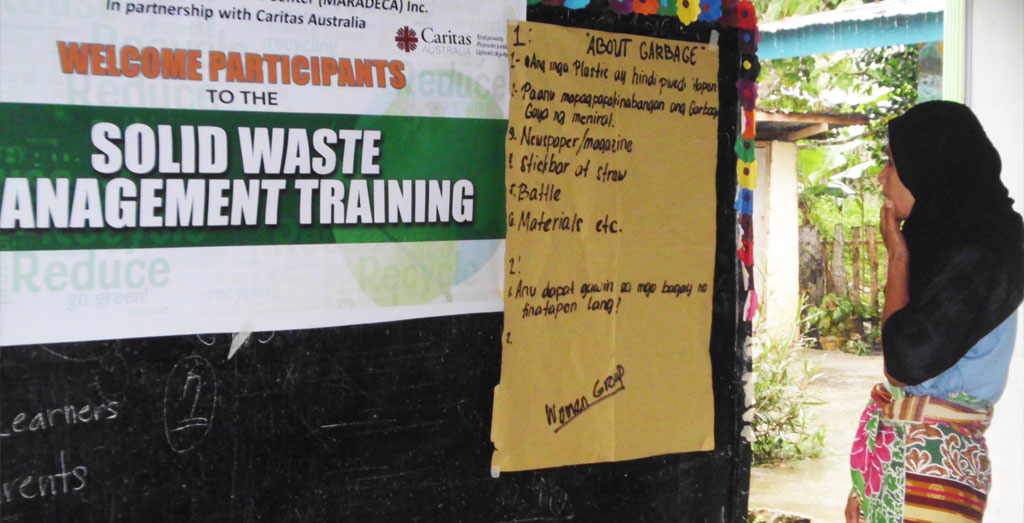 (MARADECA) Inc.
In partnership with Caritas Australia
Caritas
AUSTRALIA
WELCOME PARTICIPANTS
TO THE
SOLID WASTE
ANAGEMENT TRAINING
Reduce
go green!
recycle
recycling
Recycle
Reduce
1:
"ABOUT GARBAGE"
Ang mga Plastic ay hindi pwedi itapon
Paanu mapagpapakinabangan ang Garbage
Gaya ng meniral.
Newspaper/magazine
Stickbar of straw
Battle
Materials etc.
2:
Anu dapat gawin sa mga bagay na
tinatapon Lang?
2.
Women Group
Learners
1
rents